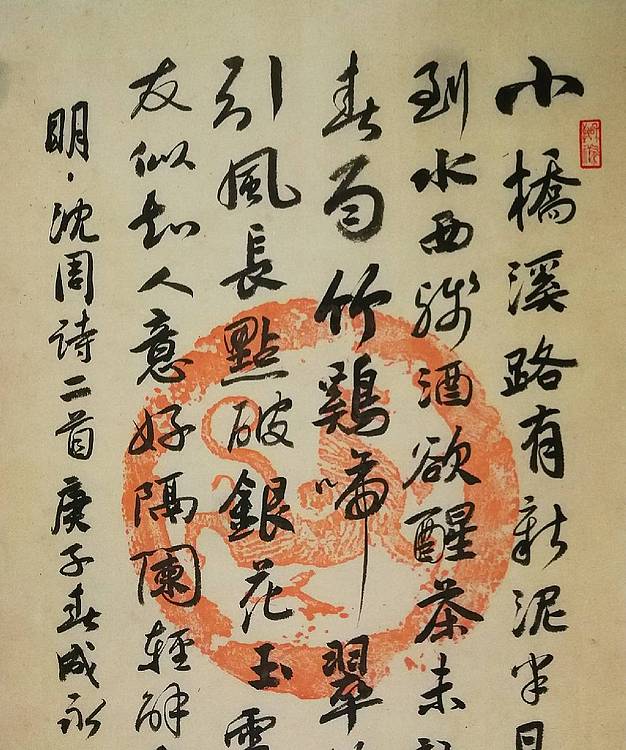 小橋溪路有新泥半日
到水西殘酒欲醒茶未
春雨竹鷄啼翠
引風長點破銀花玉雪
友似知人意好隔闌輕解
明·沈周詩二首庚子春成永